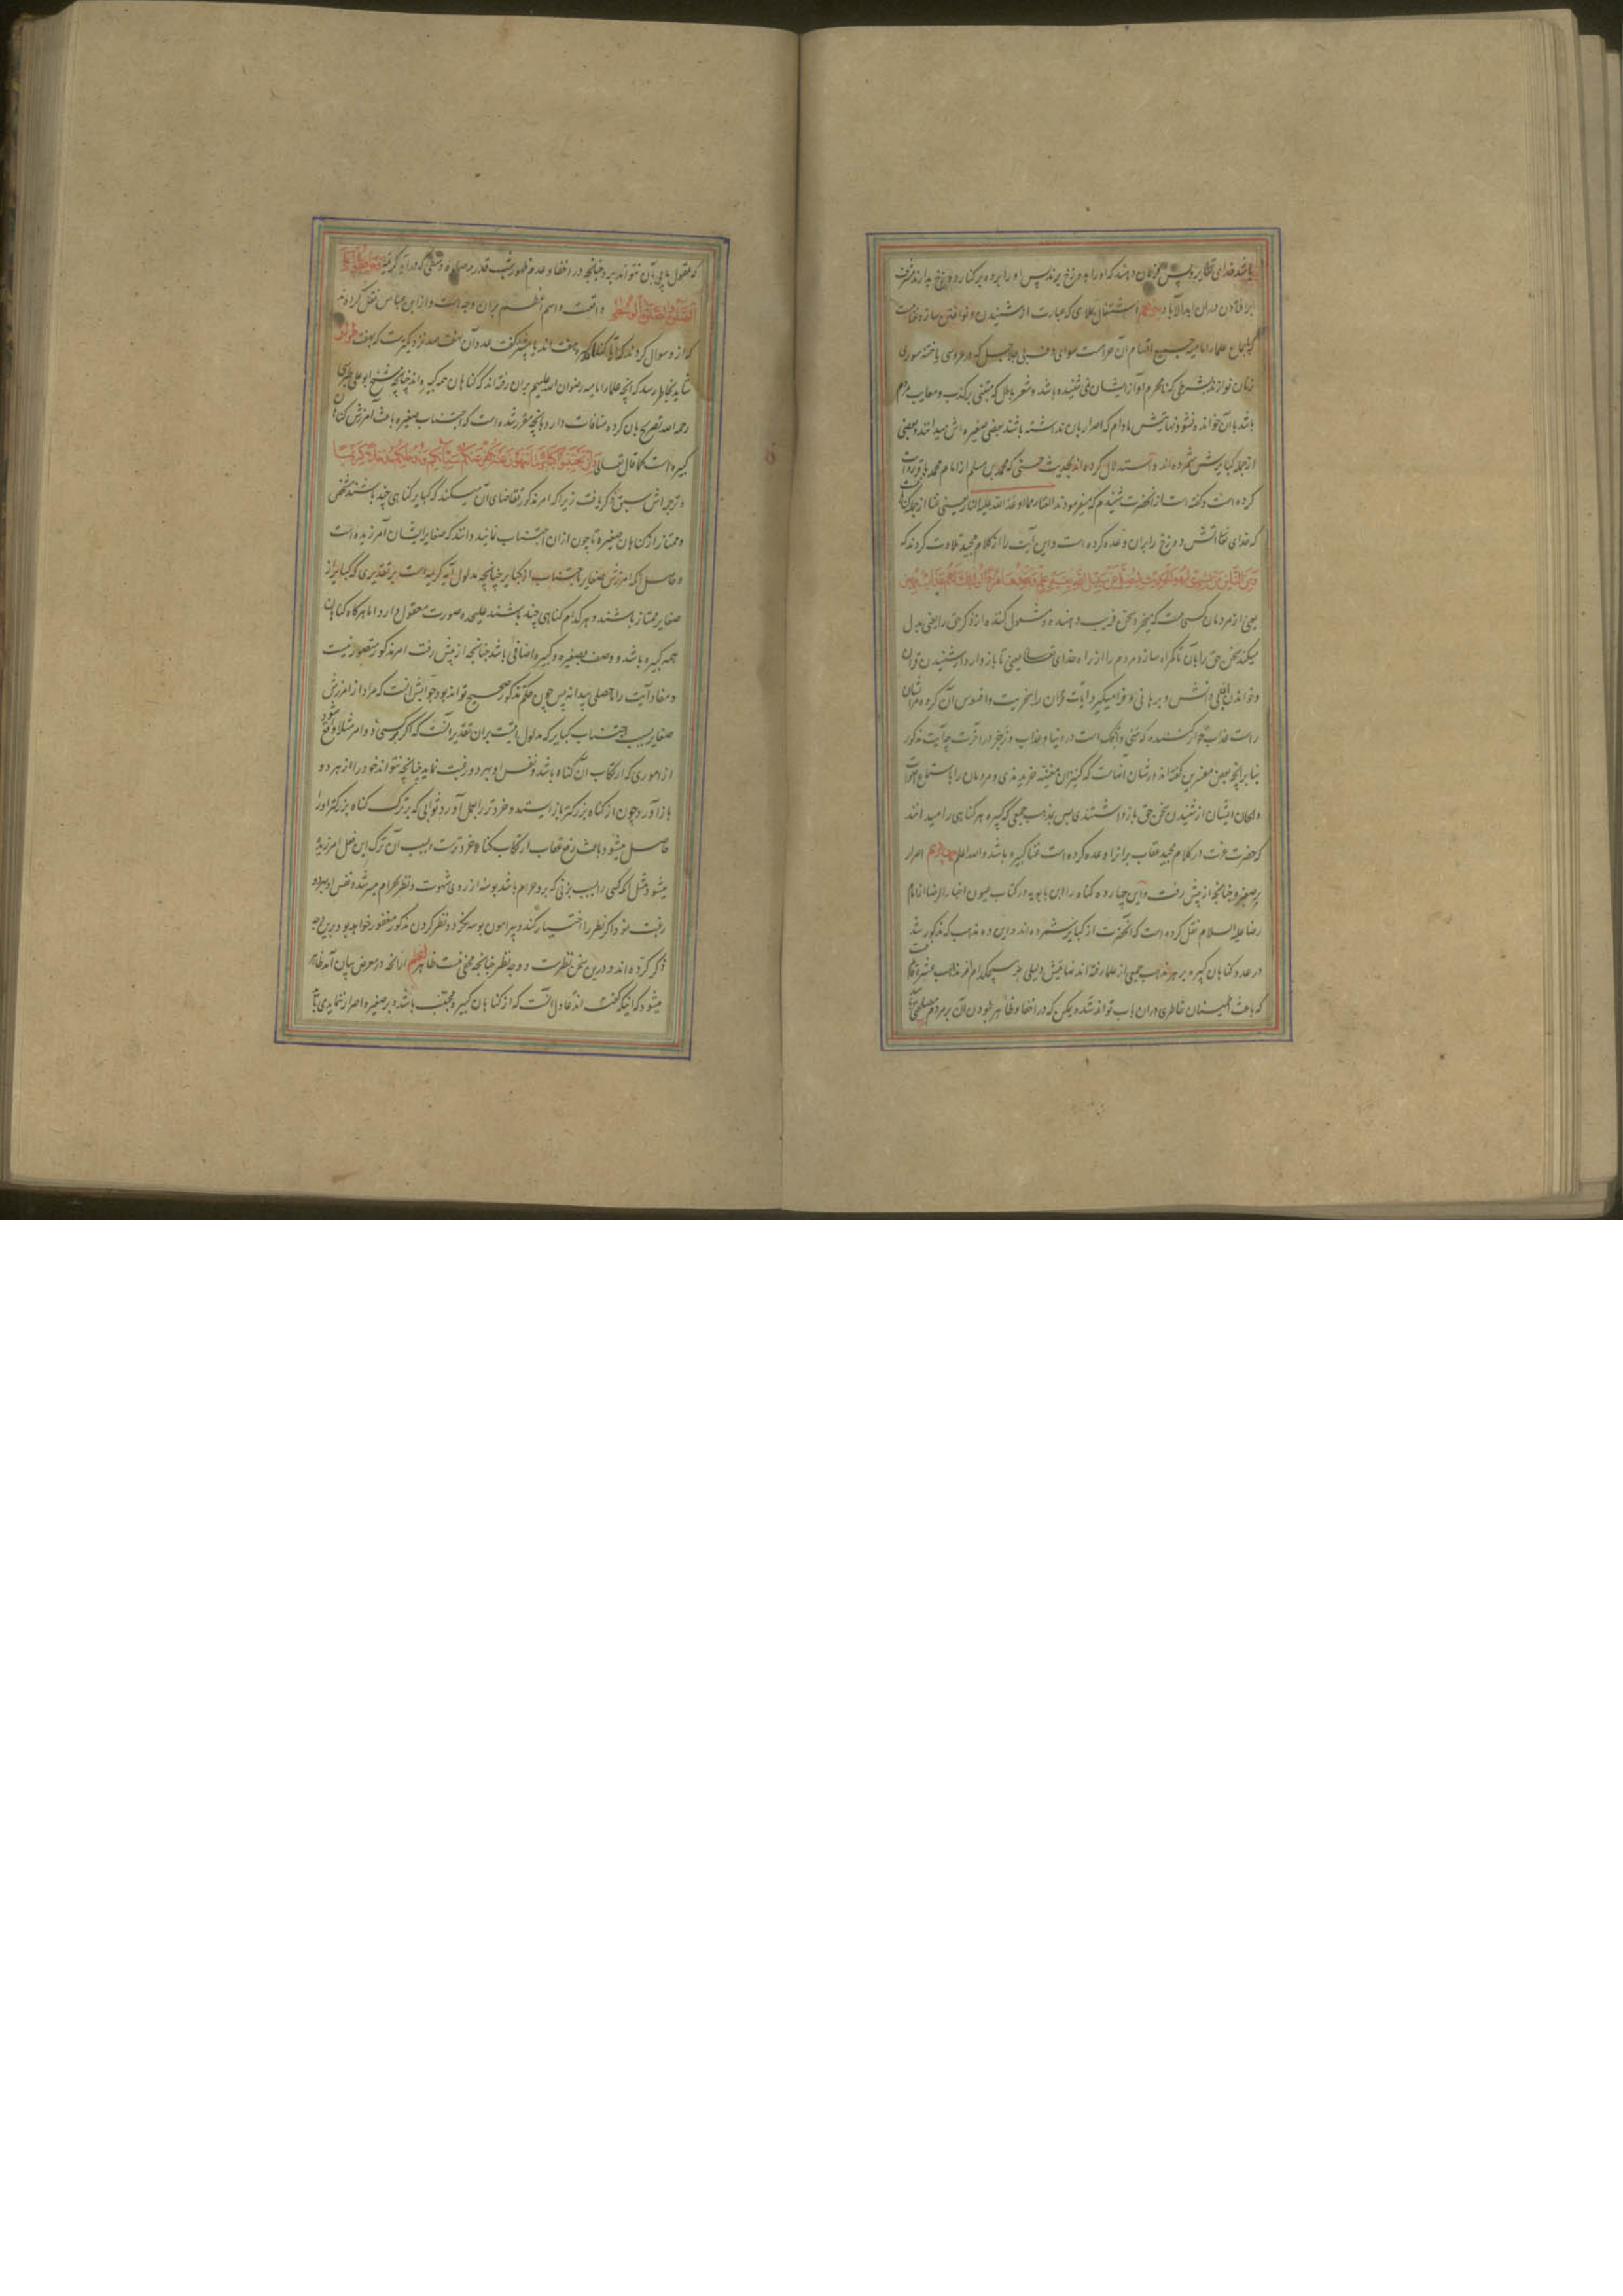 باشد خدای تعالی پس
بر افتادن دران ابد الآباد اشتغال بملاهی که عبارت از شنیدن و نواختن ساز
باجماع علماء امامیه جمیع اقسام آن حرامست سوای دف بی جلاجل که در عروسی یا ختنه سوری
زنان نوازند بشرطی که نامحرم آواز ایشان نشنیده باشد و شعر باطل که مبتنی بر کذب و معایب مردم
باشد بآن خوانده نشود نهایتش مادام که اصرار بان نداشته باشند بعضی صغیره اش میدانند و بعضی
از جمله کبایرش شمرده اند و استدلال کرده اند بحدیث حسنی که محمد بن مسلم از امام محمد باقر روایت
کرده است و گفته است از آنحضرت شنیدم که میفرمودند الغناء مما اوعد الله علیه النار یعنی غنا از جمله
که خدای تعالی آتش دوزخ را بران وعده کرده است و این آیت را از کلام مجید تلاوت کردند که
وَمِنَ النَّاسِ مَن يَشْتَرِي لَهْوَ الْحَدِيثِ لِيُضِلَّ عَن سَبِيلِ اللَّهِ بِغَيْرِ عِلْمٍ وَيَتَّخِذَهَا هُزُوًا أُولَٰئِكَ لَهُمْ عَذَابٌ مُّهِينٌ
یعنی از مردمان کسی هست که میخرد سخن فریب دهنده و مشغول کننده از ذکر حق را یعنی بدل
میکند سخن حق را بآن تا گمراه سازد مردم را از راه خدای تعالی یعنی تا باز دارد از شنیدن قران
و خواندن آن بی دانش و برهانی و فرا میگیرد آیات قران را بسخریت و افسوس آن گروه
راست عذاب خوار کننده که در دنیا و عذاب و زجر در آخرت چه آیت مذکور
بنابر آنچه بعضی مفسرین گفته اند در شان آنهاست که کنیزان مغنیه خریدندی و مردمان را باستماع
و الحان ایشان از شنیدن سخن حق باز داشتندی پس بمذهب جمعی که کبیره هر گناهی را میدانند
که حضرت عزت در کلام مجید عقاب برانرا وعده کرده است غنا کبیره باشد والله اعلم چهاردهم اصرار
بر صغیره چنانچه از پیش رفت و این چهارده گناه را ابن بابویه در کتاب عیون اخبار الرضا از امام
رضا علیه السلام نقل کرده است که آنحضرت از کبایر شمرده اند و این ده مذهب که مذکور شد
در عدد گناهان کبیره بر هر مذهب جمعی از علما رفته اند نهایتش دلیلی بر هیچکدام از مذاهب عشره
که باعث اطمینان خاطری دران باب تواند شد و ممکن که در اخفا و ظاهر نبودن آن بر مردم مصلحتی
که عقول ما پی بآن نتواند برد چنانچه در اخفا و عدم ظهور شب قدر و صلوة وسطی که در آیه کریمه حَافِظُوا عَلَى
الصَّلَوَاتِ وَالصَّلَاةِ الْوُسْطَىٰ واقعست و اسم اعظم بران وجه است و از ابن عباس نقل کرده اند
که ازو سوال کردند که آیا گناهان کبیره هفت اند یا بیشتر گفت عدد آن بهفت صد نزدیکترست که بهفت
شاید بخاطر رسد که آنچه علماء امامیه رضوان الله علیهم بران رفته اند که گناهان همه کبیره اند چنانچه شیخ ابو علی طبرسی
رحمه الله تصریح بان کرده منافات دارد بآنچه مقرر شده است که اجتناب صغیره باعث آمرزش گناهان
کبیره است کما قال تعالی إِن تَجْتَنِبُوا كَبَائِرَ مَا تُنْهَوْنَ عَنْهُ نُكَفِّرْ عَنكُمْ سَيِّئَاتِكُمْ وَنُدْخِلْكُم مُّدْخَلًا كَرِيمًا
و ترجمه اش سبق ذکر یافت زیرا که امر مذکور تقاضای آن میکند که کبایر گناهی چند باشند مشخص
و ممتاز از گناهان صغیره تا چون ازان اجتناب نمایند دانند که صغایر ایشان آمرزیده است
و حاصل که آمرزش صغایر باجتناب از کبایر چنانچه مدلول آیه کریمه است بر تقدیری که کبایر از
صغایر ممتاز باشند و هر کدام گناهی چند باشند علیحده صورت معقول دارد اما هرگاه گناهان
همه کبیره باشد و وصف بصغیره و کبیره اضافی باشد چنانچه از پیش رفت امر مذکور متصور نیست
و مفاد آیت را ماحصلی پیدا نه پس چون حکم مذکور صحیح تواند بود جوابش آنست که مراد از آمرزش
صغایر بسبب اجتناب کبایر که مدلول آیتست بران تقدیر آنست که اگر کسی دو امر مثلا واقع شود
از اموری که ارتکاب آن گناه باشد و نفس او بهر دو رغبت نماید چنانچه نتواند خود را از هر دو
باز آورد چون از گناه بزرگتر باز ایستد و خردتر را بعمل آورد ثوابی که بر ترک گناه بزرگتر او را
حاصل میشود باعث رفع عقاب ارتکاب گناه خردترست و بسبب آن ترک این فعل آمرزیده
میشود مثل آنکه کسی را بسبب زنی که برو حرام باشد بوسه از روی شهوت و نظر بحرام میسر شد و نفس او بهر دو
رغبت نمود اگر نظر را اختیار کند و پیرامون بوسه نگردد نظر کردن مذکور مغفور خواهد بود برین وجه
ذکر کرده اند و درین سخن نظرست و وجه نظر چنانچه مخفی نیست ظاهر از آنچه در معرض بیان آمد ظاهر
میشود که اینکه گفته اند عادل آنست که از گناهان کبیره مجتنب باشد و بر صغیره اصرار ننماید